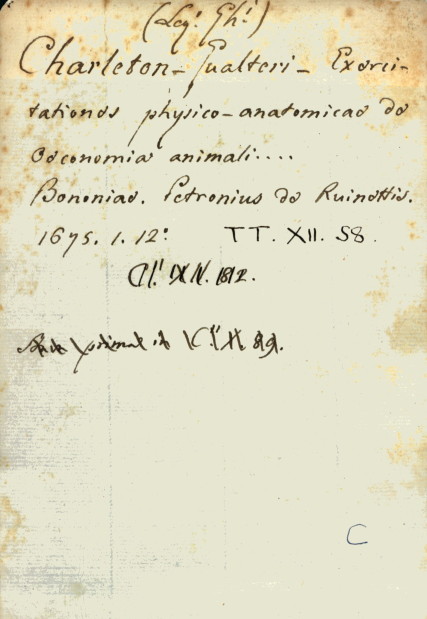 (Leg! Gh!)
Charleton - Gualteri - Exerci-
tationes physico-anatomicae de
Oeconomia animali....
Bononiae. Petronius de Ruinettis.
1675. 1. 12º TT. XII. 58.
Cl. IX N. 1812.
C